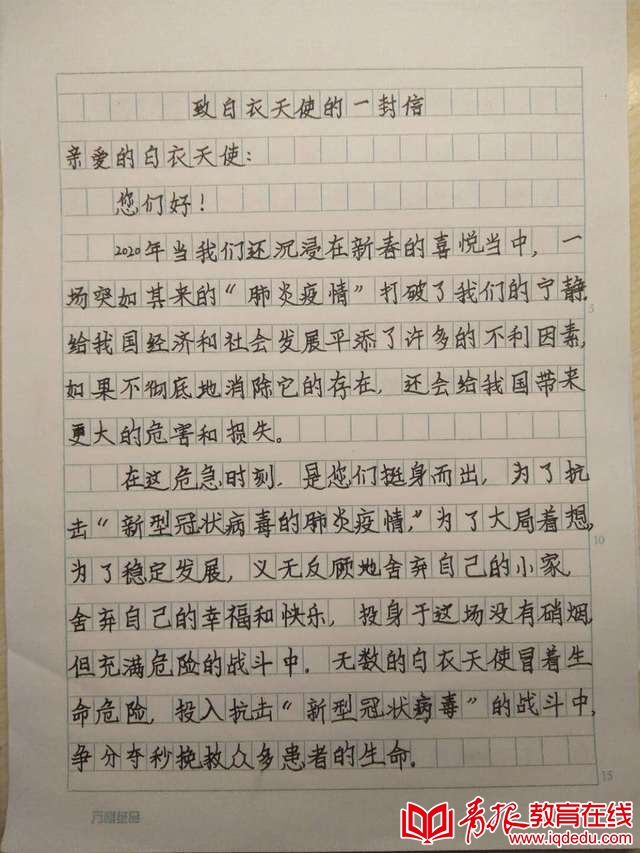 致白衣天使的一封信
亲爱的白衣天使：
您们好！
2020年当我们还沉浸在新春的喜悦当中，一
场突如其来的“肺炎疫情”打破了我们的宁静，
给我国经济和社会发展平添了许多的不利因素，
如果不彻底地消除它的存在，还会给我国带来
更大的危害和损失。
在这危急时刻，是您们挺身而出，为了抗
击“新型冠状病毒的肺炎疫情，”为了大局着想，
为了稳定发展，义无反顾地舍弃自己的小家，
舍弃自己的幸福和快乐，投身于这场没有硝烟
但充满危险的战斗中。无数的白衣天使冒着生
命危险，投入抗击“新型冠状病毒”的战斗中，
争分夺秒挽救众多患者的生命。
5
10
15
青报教育在线
www.iqdedu.com